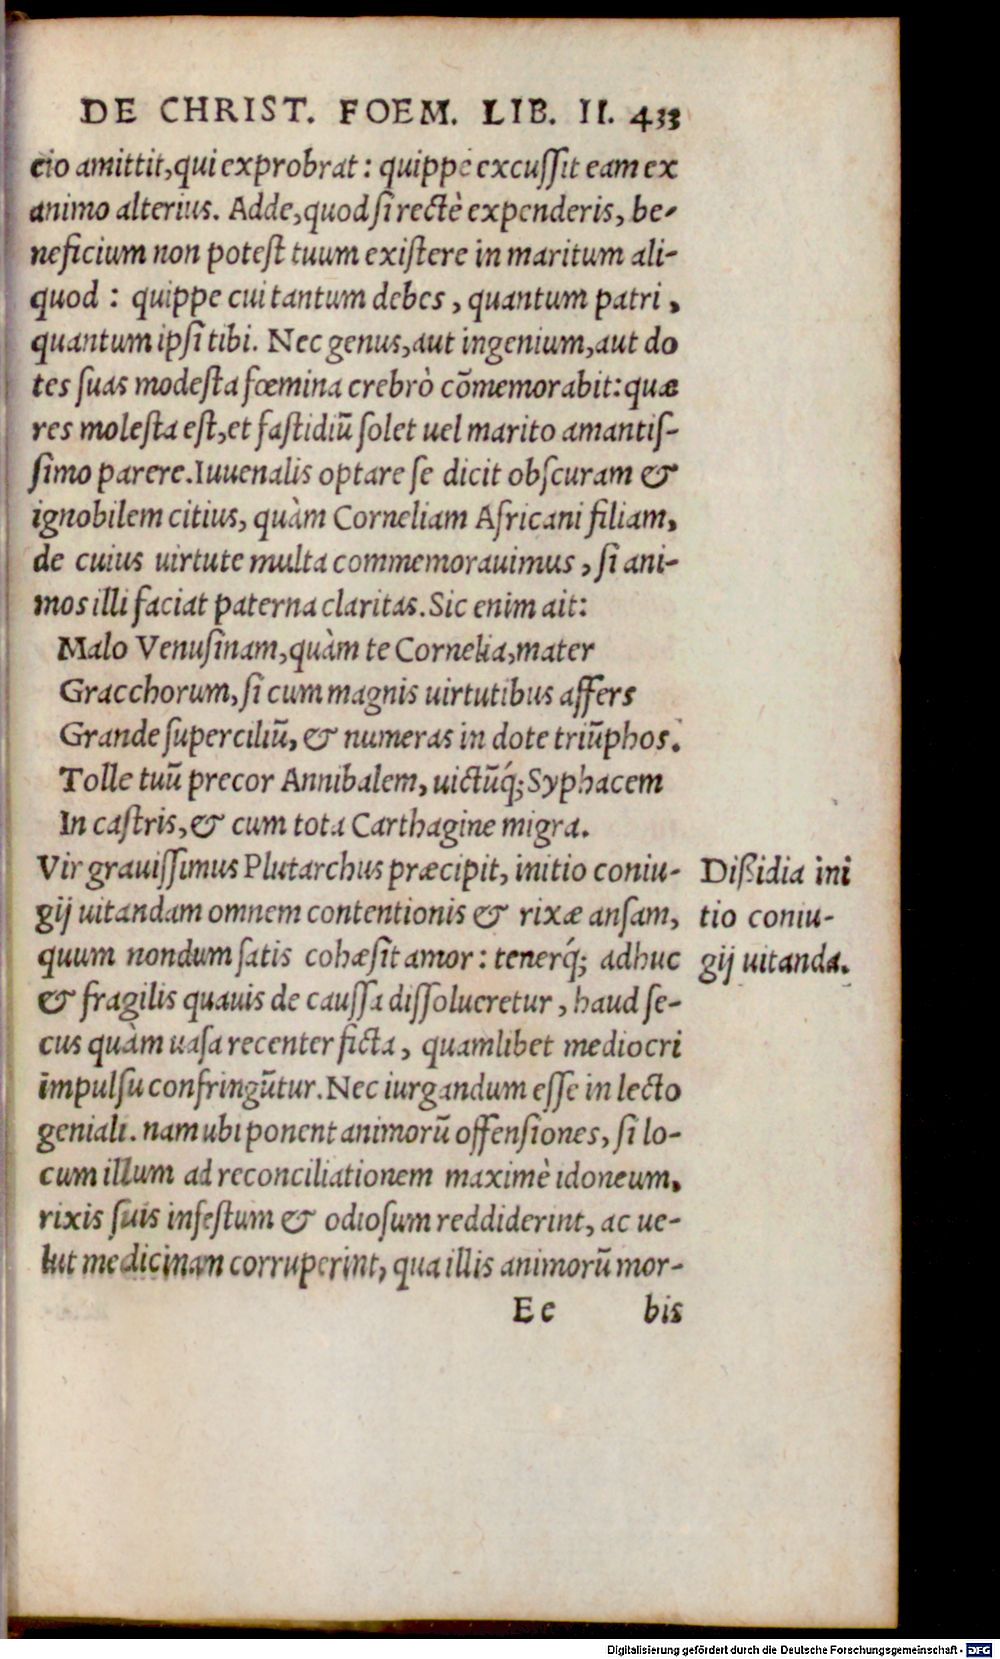 DE CHRIST. FOEM. LIB. II. 433
cio amittit, qui exprobrat: quippe excussit eam ex
animo alterius. Adde, quod si rectè expenderis, be-
neficium non potest tuum existere in maritum ali-
quod: quippe cui tantum debes, quantum patri,
quantum ipsi tibi. Nec genus, aut ingenium, aut do
tes suas modesta fœmina crebrò cõmemorabit: quæ
res molesta est, et fastidiũ solet uel marito amantis-
simo parere. Iuuenalis optare se dicit obscuram &
ignobilem citius, quàm Corneliam Africani filiam,
de cuius uirtute multa commemorauimus, si ani-
mos illi faciat paterna claritas. Sic enim ait:
Malo Venusinam, quàm te Cornelia, mater
Gracchorum, si cum magnis uirtutibus affers
Grande superciliũ, & numeras in dote triũphos.
Tolle tuũ precor Annibalem, uictũq́; Syphacem
In castris, & cum tota Carthagine migra.
Vir grauissimus Plutarchus præcipit, initio coniu-
gij uitandam omnem contentionis & rixæ ansam,
quum nondum satis cohæsit amor: tenerq́; adhuc
& fragilis quauis de caussa dissolueretur, haud se-
cus quàm uasa recenter ficta, quamlibet mediocri
impulsu confringũtur. Nec iurgandum esse in lecto
geniali. nam ubi ponent animorũ offensiones, si lo-
cum illum ad reconciliationem maximè idoneum,
rixis suis infestum & odiosum reddiderint, ac ue-
lut medicinam corruperint, qua illis animorũ mor-
Ee bis
Dißidia ini
tio coniu-
gij uitanda.
Digitalisierung gefördert durch die Deutsche Forschungsgemeinschaft - DFG